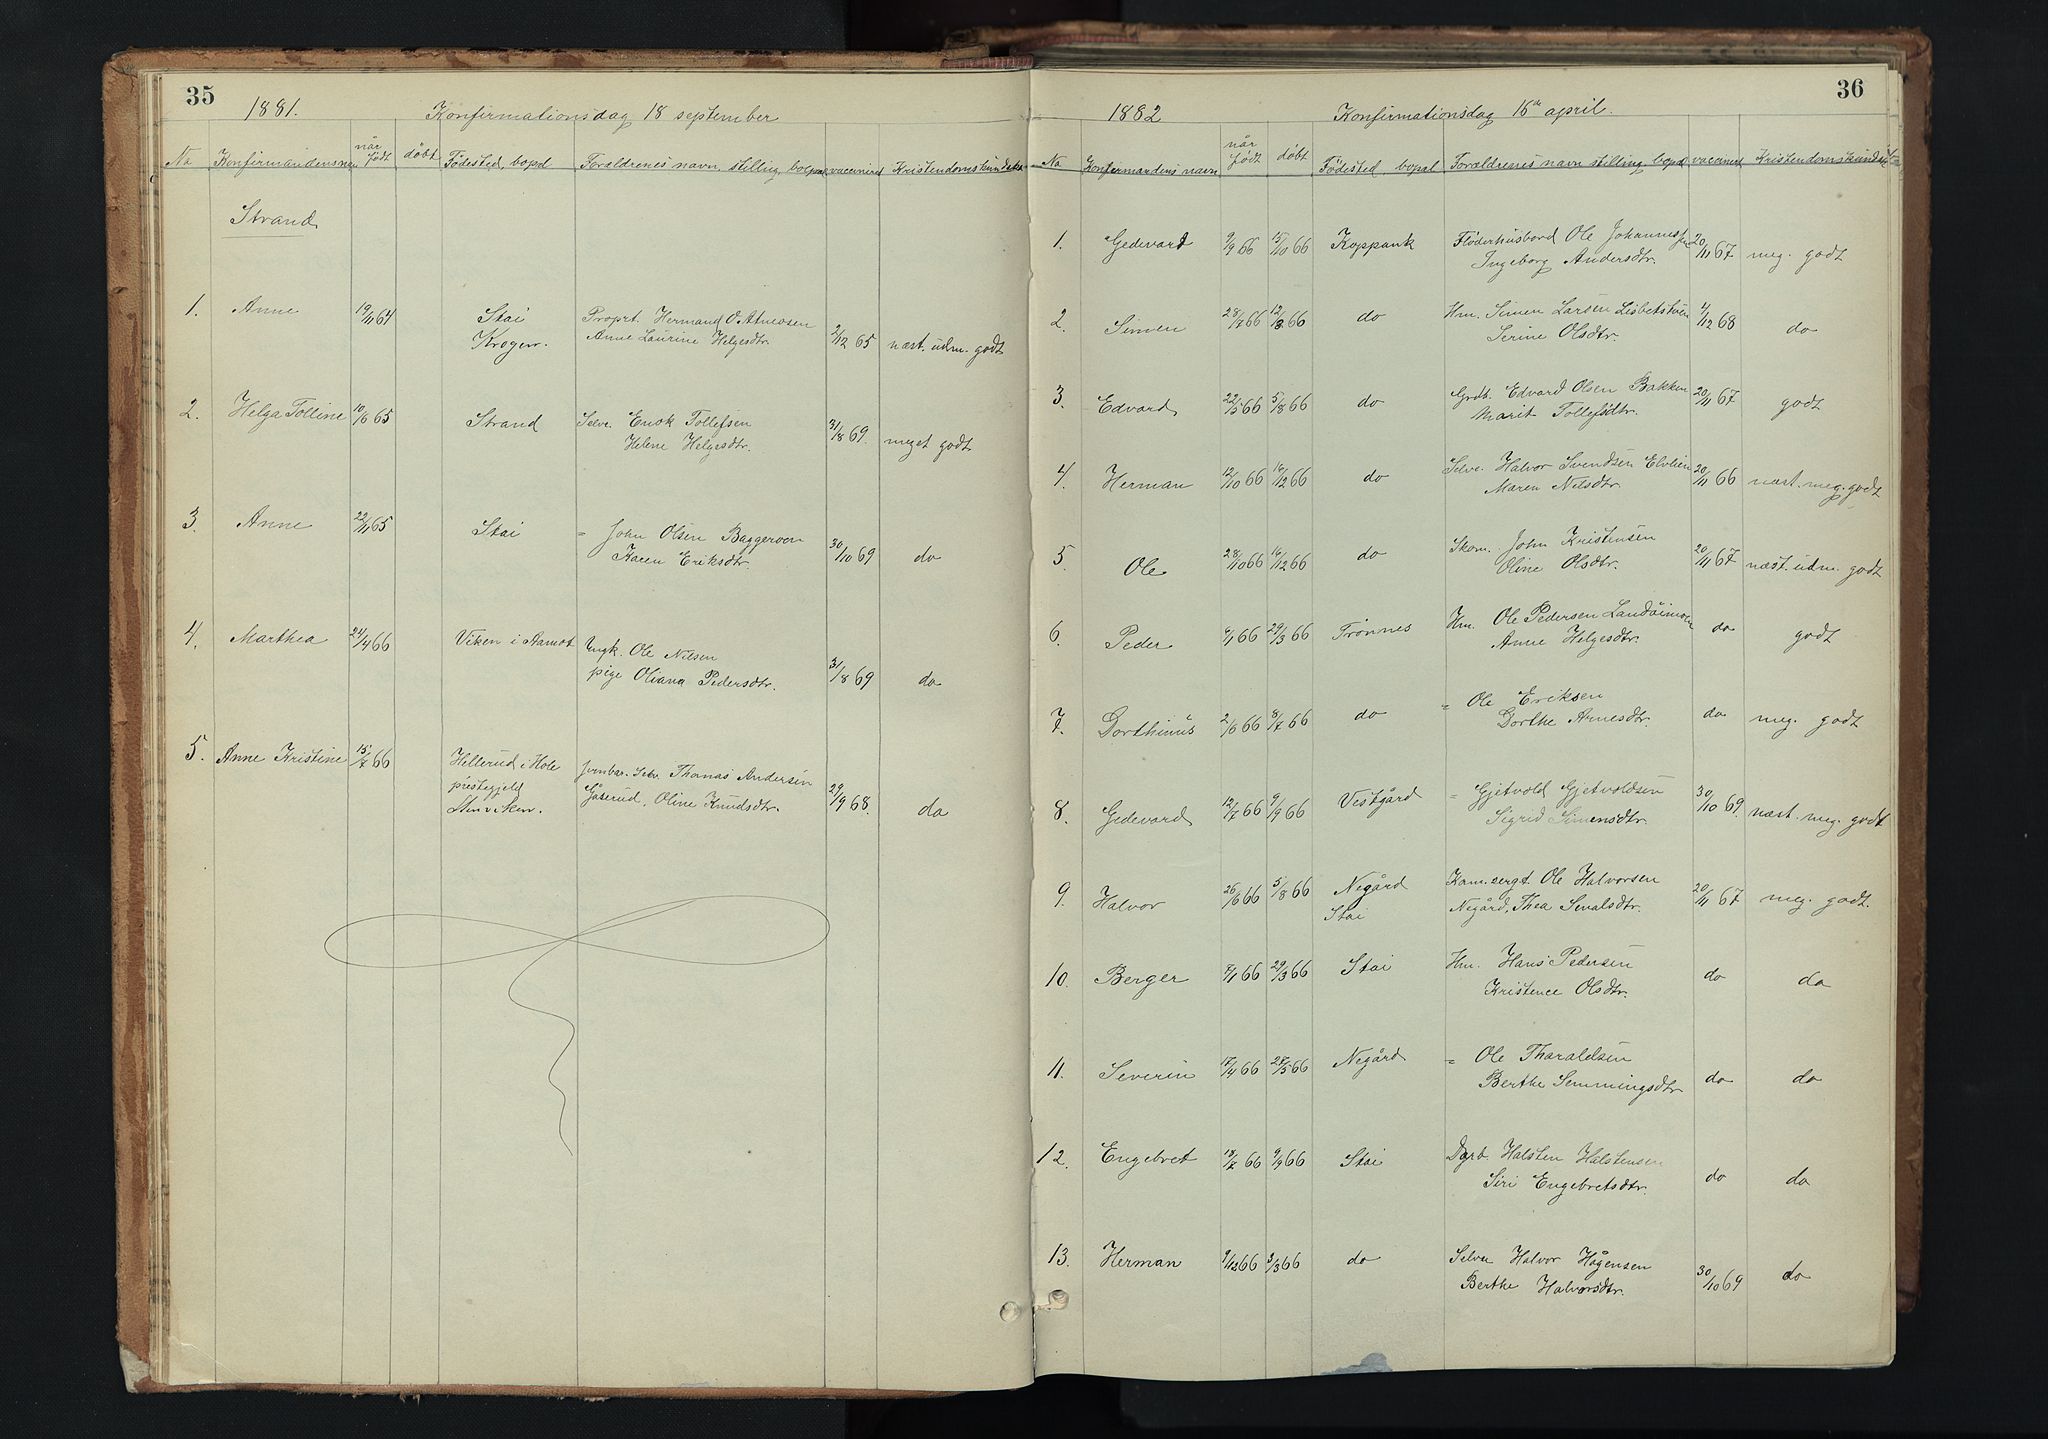 35
1881. Konfirmationsdag 18 september
No Konfirmandens navn når født døbt Fødested, bopæl Forældrenes navn, stilling, bopæl vaccineret Kristendomskundskab
Strand
1. Anne 19/11 64 Stai Proprt. Hermand O Atneosen
Krogen. Anne Laurine Helgesdtr. 2/12 65 næst. udm. godt
2. Helga Tolline 10/6 65 Strand Selve. Enok Tollefsen 31/8 69.
Helene Helgesdtr. meget godt
3. Anne 22/11 65 Stai = John Olsen Baggerven
Karen Eriksdtr. 30/10 69 do
4. Marthea 24/4 66 Viken i Aamot Ungk. Ole Nilsen
pige Oliana Pedersdtr. 31/8 69 do
5. Anne Kristine 15/7 66 Hellerud i Hole Jernbar. Selv. Thomas Andersen
præstegjeld Gåserud, Oline Knudsdtr. 29/9 68. do
36
1882 Konfirmationsdag 16de april.
No Konfirmandens navn når født døbt Fødested, bopæl Forældrenes navn stilling, bopæl vaccineret Kristendomskundskab
1. Gedevard 9/9 66 15/10 66 Koppank Ole Johannessen 20/11 67 meg. godt
Ingeborg Andersdtr.
2. Simen 28/7 66 12/8 66 do Hm. Simen Larsen Lisbetstuen 4/12 68 do
Serine Olsdtr.
3. Edvard 22/5 66 5/8 66 do Grdb. Edvard Olsen Bakken 20/11 67 godt
Marit Tollefsdtr.
4. Herman 12/10 66 16/12 66 do Selve. Halvor Svendsen Elvlien 20/11 66 næst. meg. godt
Maren Nilsdtr.
5. Ole 28/10 66 16/12 66 do Skom. John Kristensen 20/11 67 næst. udm. godt
Oline Olsdtr.
6. Peder 66 29/3 66 Trønnes Hm. Ole Pedersen Landåimoen do godt
Anne Helgesdtr.
7. Dorthinus 2/6 66 8/7 66 do = Ole Eriksen do meg. godt
Dorthe Arnesdtr.
8. Gedevard 12/7 66 9/9 66 Vestgård = Gjetvold Gjetvoldsen 30/10 69. næst. meg. godt
Sigrid Simensdtr.
9. Halvor 26/6 66 5/8 66 Negård Kom.sergt. Ole Halvorsen 20/11 67 meg. godt.
Stai Negård, Thea Smalsdtr.
10. Berger 7/1 66 29/3 66 Stai Hm. Hans Pedersen do do
Kristence Olsdtr.
11. Severin 17/4 66 27/5 66 Negård = Ole Tharaldsen
Berthe Semmingsdtr do do
12. Engebret 19/7 66 9/9 66 Stai Halsten Halstensen
Siri Engebretsdtr. do do
13. Herman 66 3/3 66 do Selve Halvor Hågensen
Berthe Halvorsdtr. 30/10 69 do